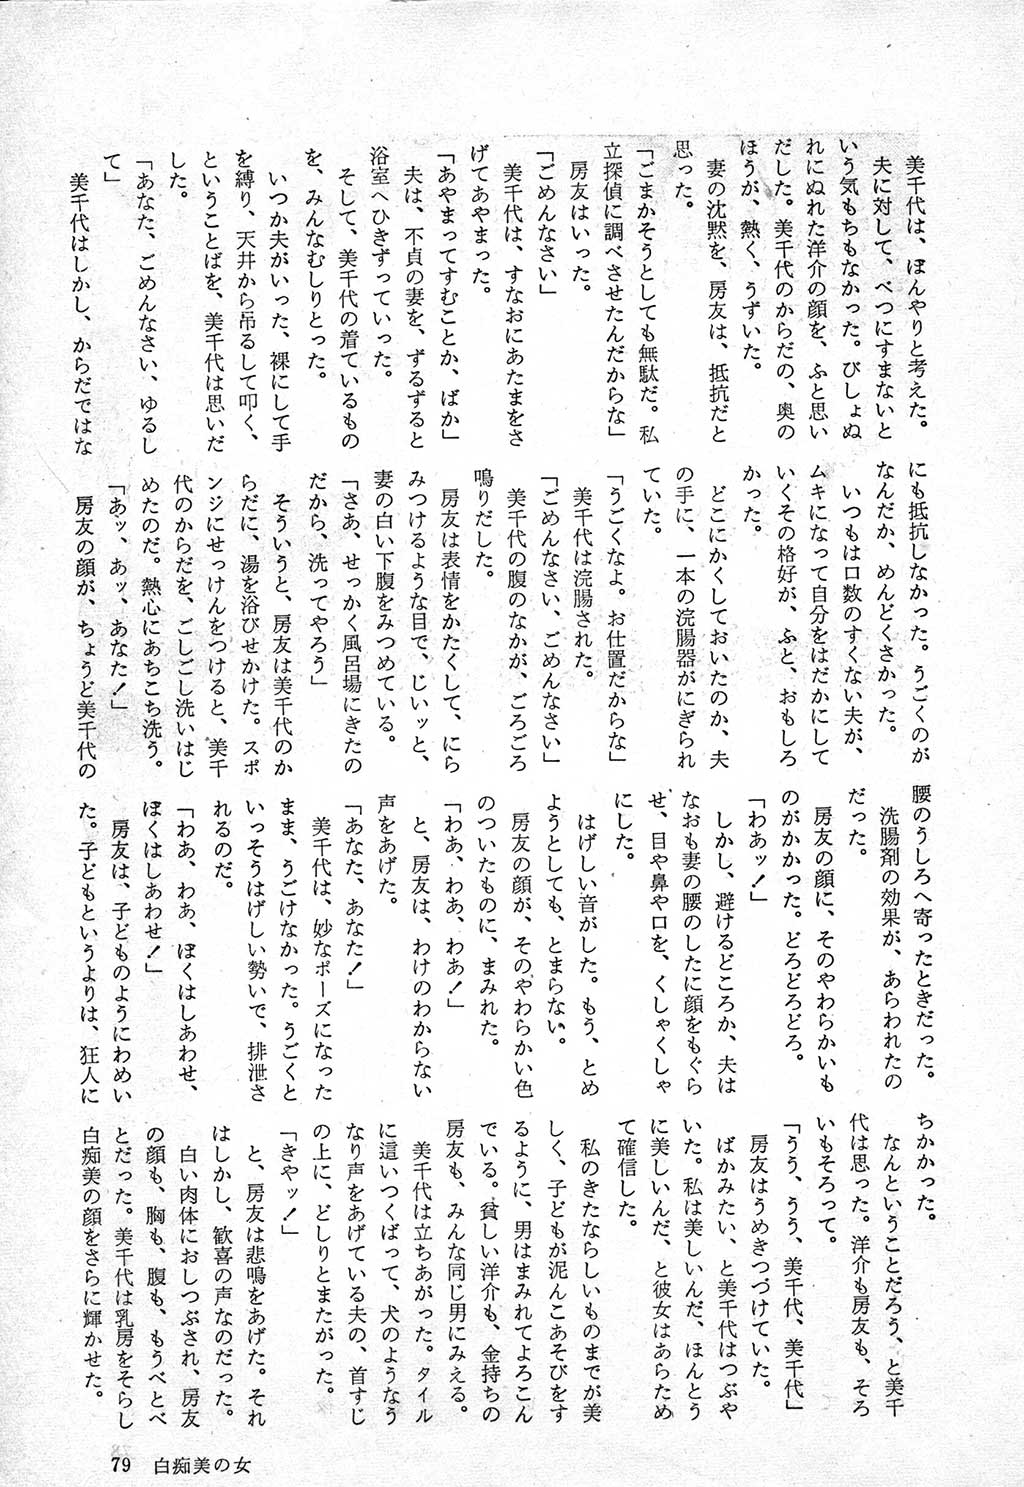 美千代は、ぼんやりと考えた。
夫に対して、べつにすまないと
いう気もちもなかった。びしょぬ
れにぬれた洋介の顔を、ふと思い
だした。美千代のからだの、奥の
ほうが、熱く、うずいた。
妻の沈黙を、房友は、抵抗だと
思った。
「ごまかそうとしても無駄だ。私
立探偵に調べさせたんだからな」
房友はいった。
「ごめんなさい」
美千代は、すなおにあたまをさ
げてあやまった。
「あやまってすむことか、ばか」
夫は、不貞の妻を、ずるずると
浴室へひきずっていった。
そして、美千代の着ているもの
を、みんなむしりとった。
いつか夫がいった、裸にして手
を縛り、天井から吊るして叩く、
ということばを、美千代は思いだ
した。
「あなた、ごめんなさい、ゆるし
て」
美千代はしかし、からだではな
にも抵抗しなかった。うごくのが
なんだか、めんどくさかった。
いつもは口数のすくない夫が、
ムキになって自分をはだかにして
いくその格好が、ふと、おもしろ
かった。
どこにかくしておいたのか、夫
の手に、一本の浣腸器がにぎられ
ていた。
「うごくなよ。お仕置だからな」
美千代は浣腸された。
「ごめんなさい、ごめんなさい」
美千代の腹のなかが、ごろごろ
鳴りだした。
房友は表情をかたくして、にら
みつけるような目で、じいッと、
妻の白い下腹をみつめている。
「さあ、せっかく風呂場にきたの
だから、洗ってやろう」
そういうと、房友は美千代のか
らだに、湯を浴びせかけた。スポ
ンジにせっけんをつけると、美千
代のからだを、ごしごし洗いはじ
めたのだ。熱心にあちこち洗う。
「あッ、あッ、あなた！」
房友の顔が、ちょうど美千代の
腰のうしろへ寄ったときだった。
洗腸剤の効果が、あらわれたの
だった。
房友の顔に、そのやわらかいも
のがかかった。どろどろどろ。
「わあッ！」
しかし、避けるどころか、夫は
なおも妻の腰のしたに顔をもぐら
せ、目や鼻や口を、くしゃくしゃ
にした。
はげしい音がした。もう、とめ
ようとしても、とまらない。
房友の顔が、そのやわらかい色
のついたものに、まみれた。
「わあ、わあ、わあ！」
と、房友は、わけのわからない
声をあげた。
「あなた、あなた！」
美千代は、妙なポーズになった
まま、うごけなかった。うごくと
いっそうはげしい勢いで、排泄さ
れるのだ。
「わあ、わあ、ぼくはしあわせ、
ぼくはしあわせ！」
房友は、子どものようにわめい
た。子どもというよりは、狂人に
ちかかった。
なんということだろう、と美千
代は思った。洋介も房友も、そろ
いもそろって。
「うう、うう、美千代、美千代」
房友はうめきつづけていた。
ばかみたい、と美千代はつぶや
いた。私は美しいんだ、ほんとう
に美しいんだ、と彼女はあらため
て確信した。
私のきたならしいものまでが美
しく、子どもが泥んこあそびをす
るように、男はまみれてよろこん
でいる。貧しい洋介も、金持ちの
房友も、みんな同じ男にみえる。
美千代は立ちあがった。タイル
に這いつくばって、犬のようなう
なり声をあげている夫の、首すじ
の上に、どしりとまたがった。
「きやッ！」
と、房友は悲鳴をあげた。それ
はしかし、歓喜の声なのだった。
白い肉体におしつぶされ、房友
の顔も、胸も、腹も、もうべとべ
とだった。美千代は乳房をそらし
白痴美の顔をさらに輝かせた。
79 白痴美の女